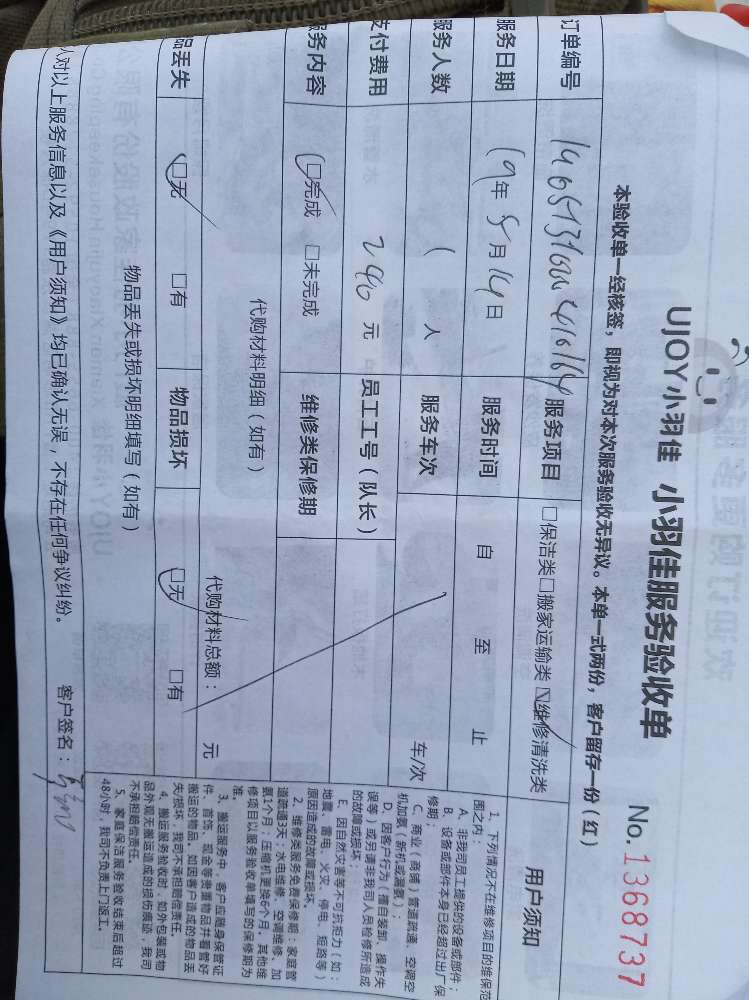 UJOY小羽佳 小羽佳服务验收单 No.1368737
本验收单一经核签，即视为对本次服务验收无异议。本单一式两份，客户留存一份（红）
订单编号 服务项目 □保洁类□搬家运输类□维修清洗类
服务日期 19年5月14日 服务时间 自 至 止
服务人数 人 服务车次 车/次
支付费用 240元 员工工号（队长）
服务内容 □完成 □未完成 维修类保修期
代购材料明细（如有） 代购材料总额： 元
品丢失 □无 □有 物品损坏 □无 □有
物品丢失或损坏明细填写（如有）
人对以上服务信息以及《用户须知》均已确认无误，不存在任何争议纠纷。 客户签名：
用户须知
1、下列情况不在维修项目的维保范
围之内：
A、非我司员工提供的设备或部件；
B、设备或部件本身已经超过出厂保
修期；
C、商业（商铺）管道疏通、空调空
机加氨（新机或漏氨）；
D、因客户行为（擅自装卸、操作失
误等）或另请非我司人员检修所造成
的故障或损坏；
E、因自然灾害等不可抗拒力（如：
地震、雷电、火灾、停电、短路等）
原因造成的故障或损坏。
2、维修类服务免费保修期：家庭管
道疏通3天；水电维修、空调维修、加
氨1个月；压缩机更换6个月，其他维
修项目以服务验收单填写的保修期为
准。
3、搬运服务中，客户应随身保管证
件、首饰、现金等贵重物品并看管好
搬运的物品。如因客户造成的物品丢
失/损坏，我司不承担赔偿责任。
4、搬运服务验收时，如外包装或物
品外观无搬运造成的损伤痕迹，我司
不承担赔偿责任。
5、家庭保洁服务验收结束后超过
48小时，我司不负责上门返工。